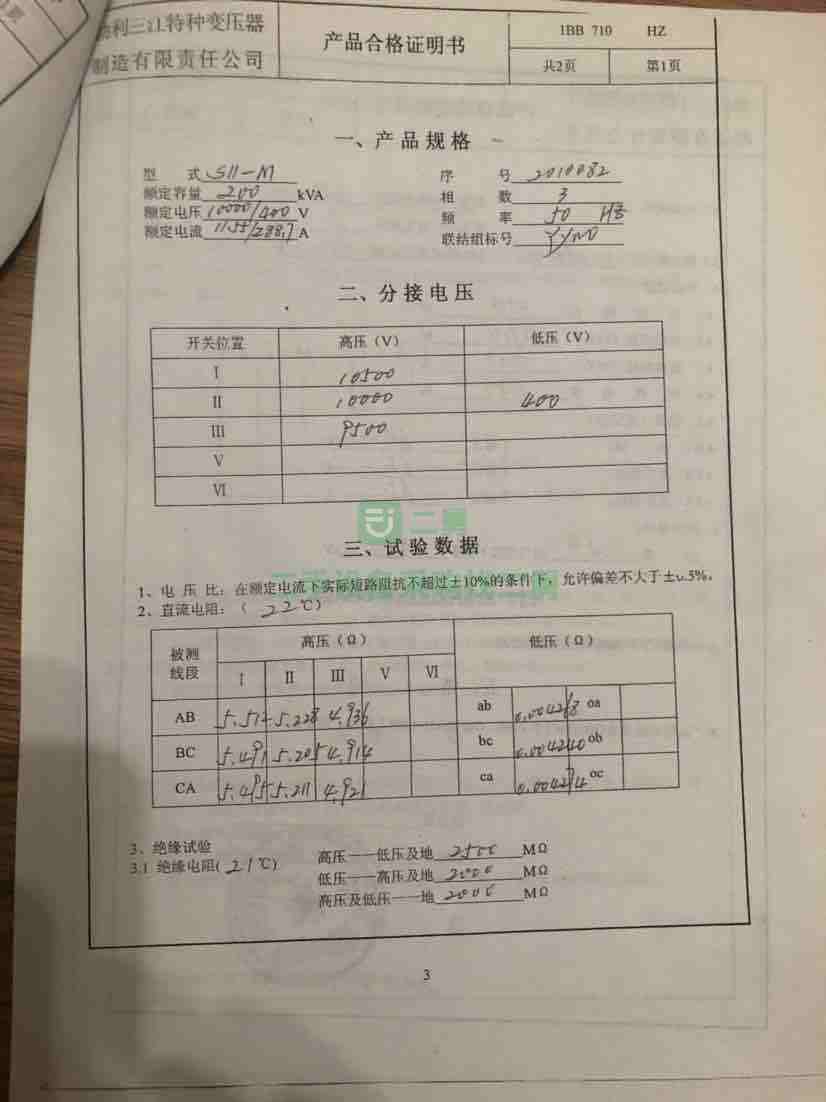 利三江特种变压器
制造有限责任公司
产品合格证明书
1BB 710 HZ
共2页 第1页
一、产品规格
型 式 S11-M 序 号 2010082
额定容量 200 kVA 相 数 3
额定电压 10000/400 V 频 率 50 HZ
额定电流 11.55/288.7 A 联结组标号 Yyn0
二、分接电压
开关位置 高压（V） 低压（V）
I 10500
II 10000 400
III 9500
V
VI
二手
三、试验数据
1、电 压 比：在额定电流下实际短路阻抗不超过±10%的条件下，允许偏差不大于±0.5%。
2、直流电阻：（ 22℃）
被测线段 高压（Ω） 低压（Ω）
I II III V VI
AB 5.512 5.228 4.936 ab 0.004268 oa
BC 5.491 5.205 4.914 bc 0.004240 ob
CA 5.495 5.211 4.921 ca 0.004274 oc
3、绝缘试验
3.1 绝缘电阻( 21℃) 高压——低压及地 2500 MΩ
低压——高压及地 2000 MΩ
高压及低压——地 2000 MΩ
3